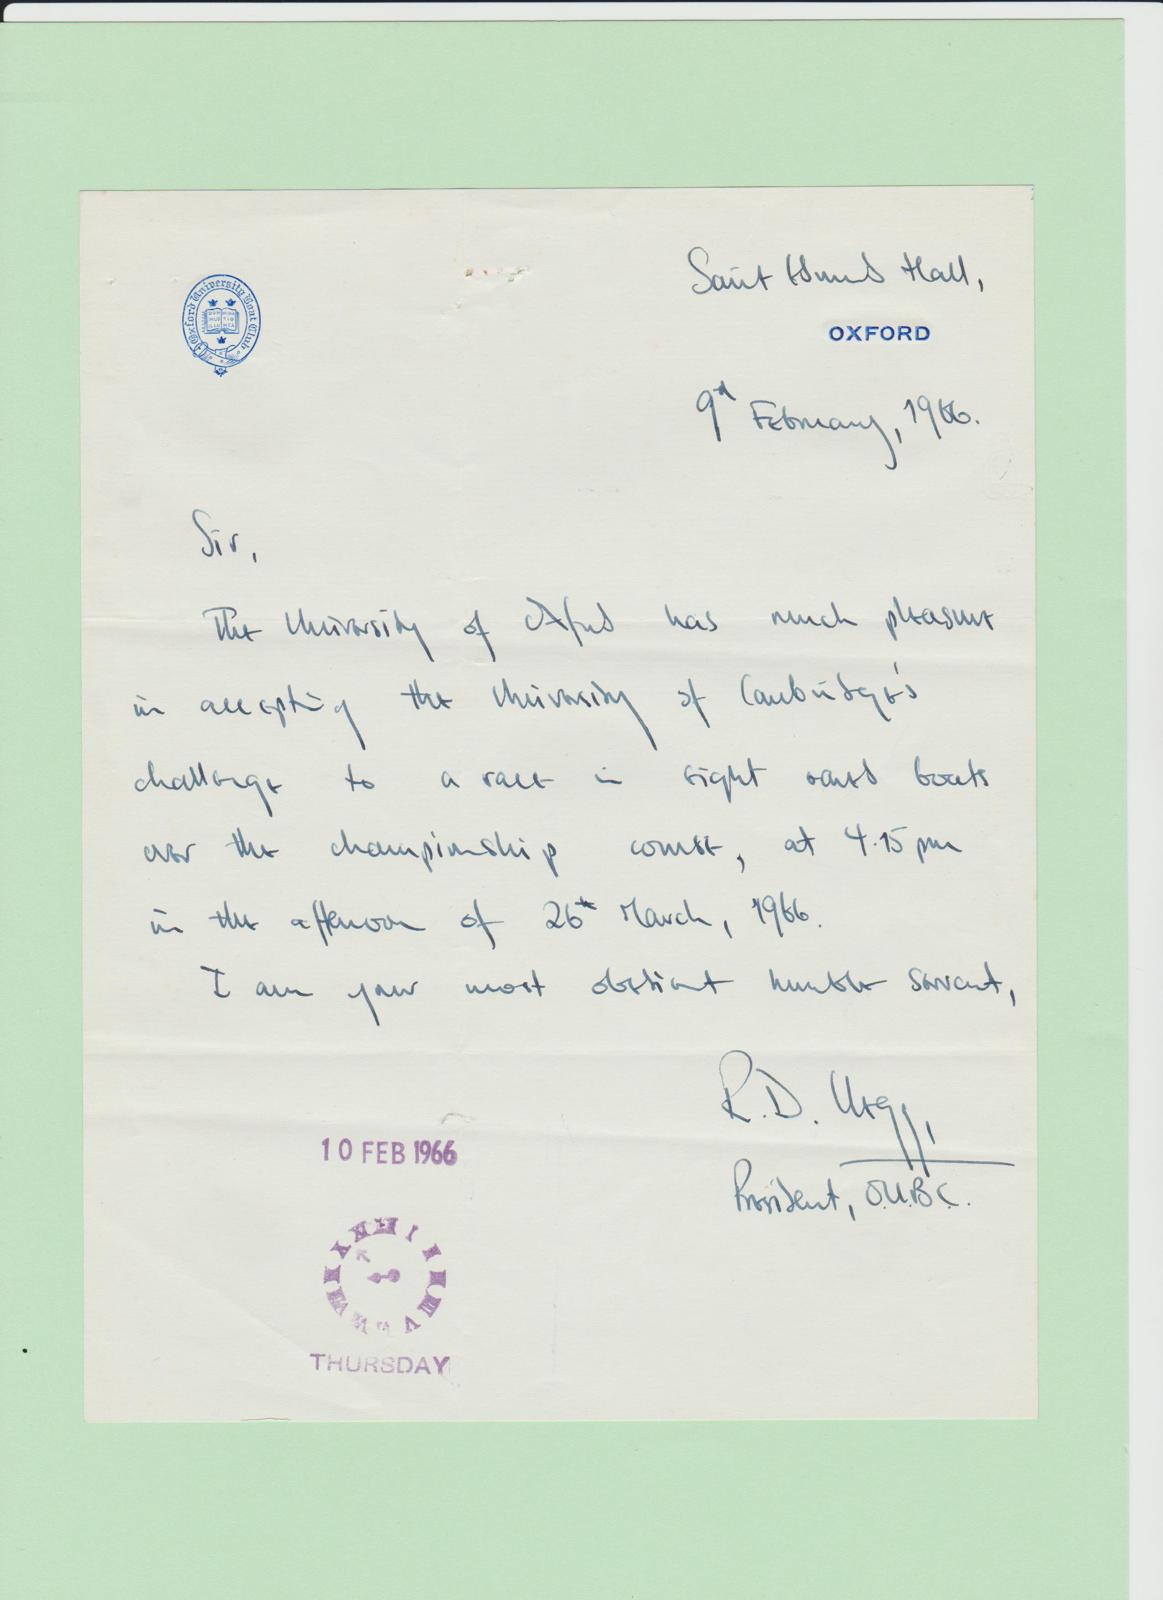 Oxford University Boat Club
DOMINUS ILLUMINATIO MEA
Saint Edmund Hall,
OXFORD
9th February, 1966.
Sir,
The University of Oxford has much pleasure
in accepting the University of Cambridge's
challenge to a race in eight oared boats
over the championship course, at 4.15 pm
in the afternoon of 26th March, 1966.
I am your most obedient humble servant,
R.D. Clegg,
President, O.U.B.C.
10 FEB 1966
THURSDAY